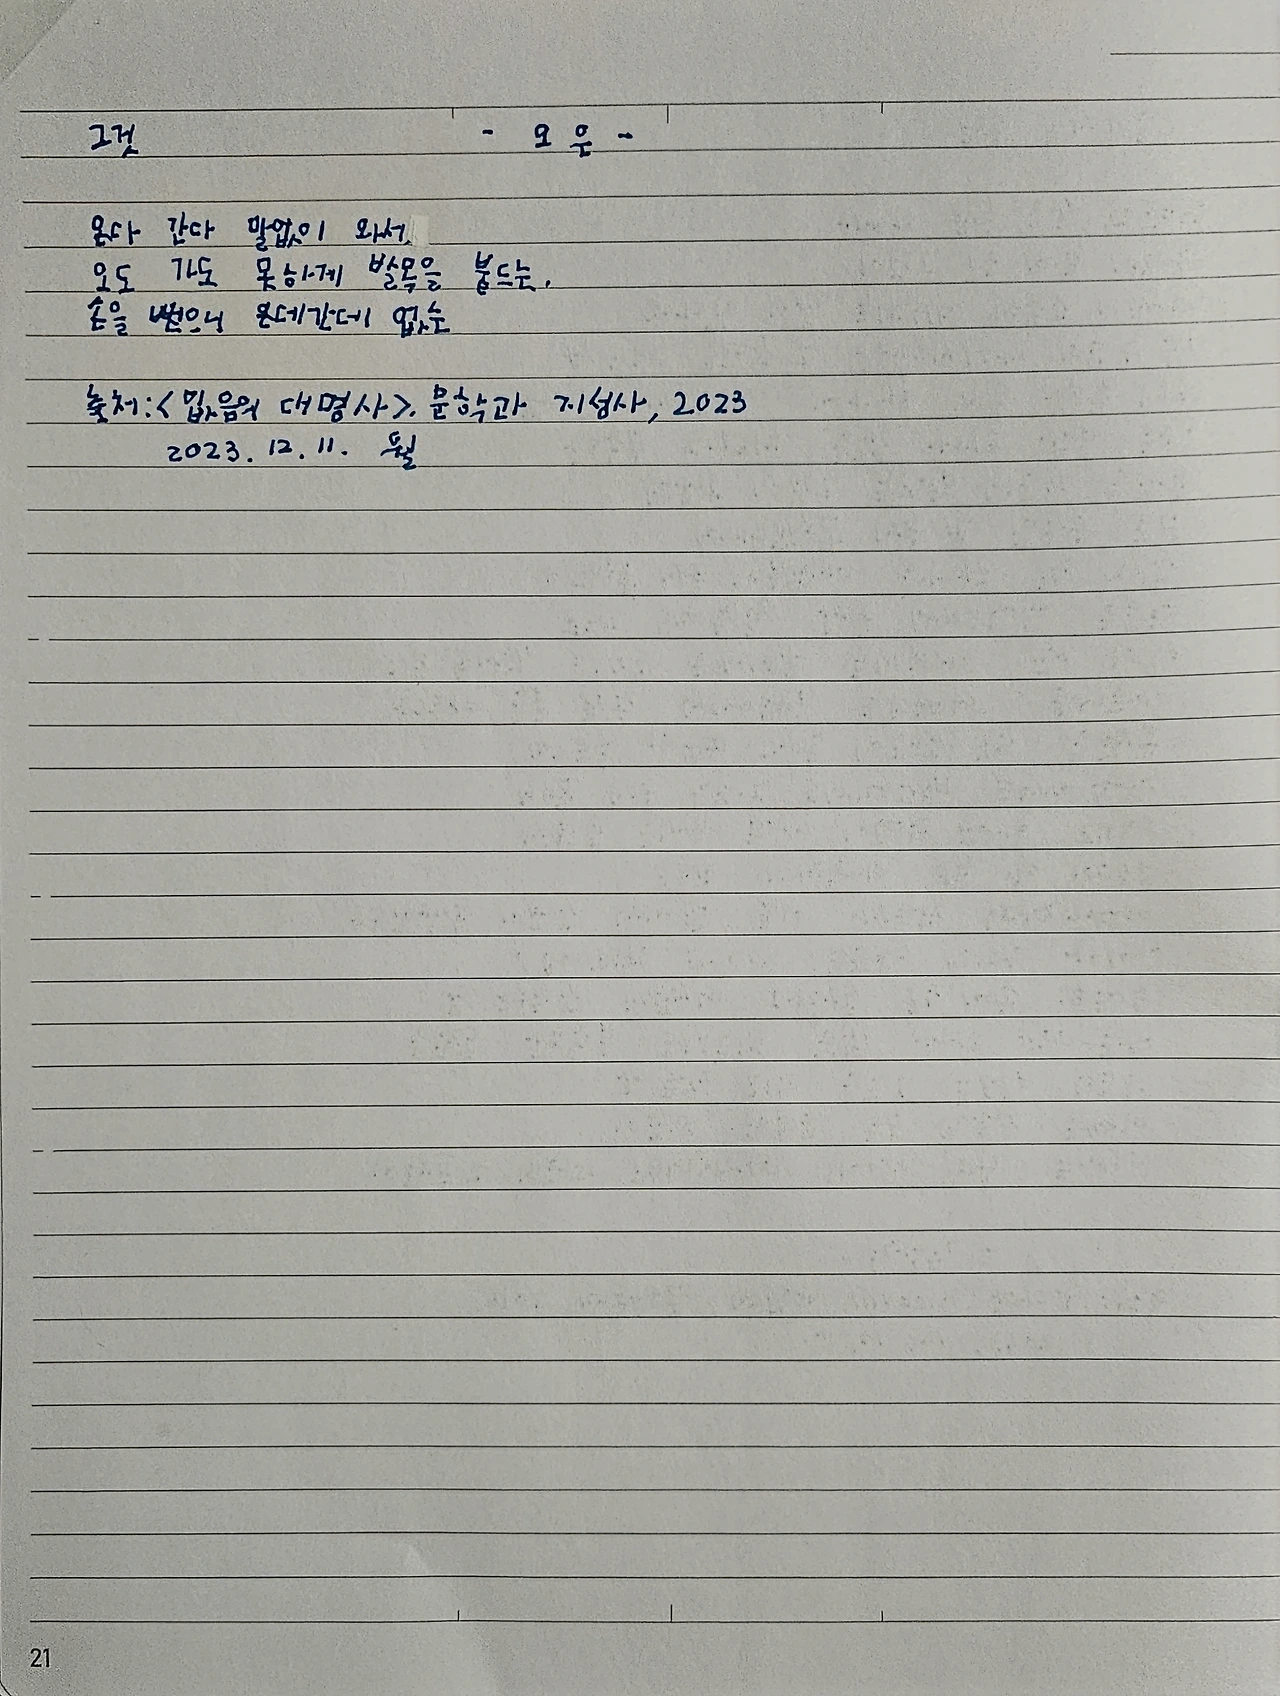 그것 - 오 은 -
온다 간다 말없이 와서
오도 가도 못하게 발목을 붙드는,
손을 뻗으니 온데간데 없는
출처:<없음의 대명사>. 문학과 지성사, 2023
2023. 12. 11. 월
21